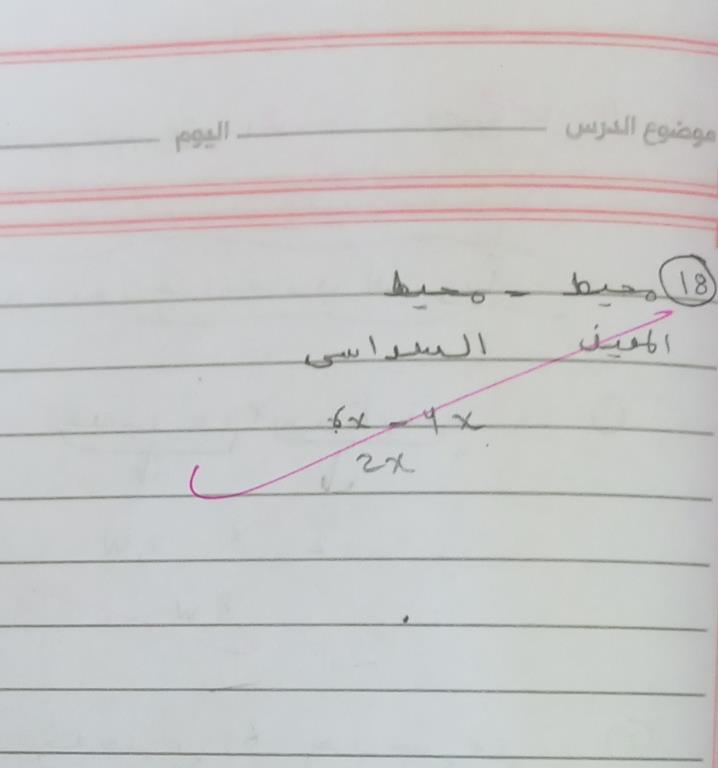 موضوع الدرس اليوم
18 محيط - محيط
المعين السداسى
6x - 4x
2x